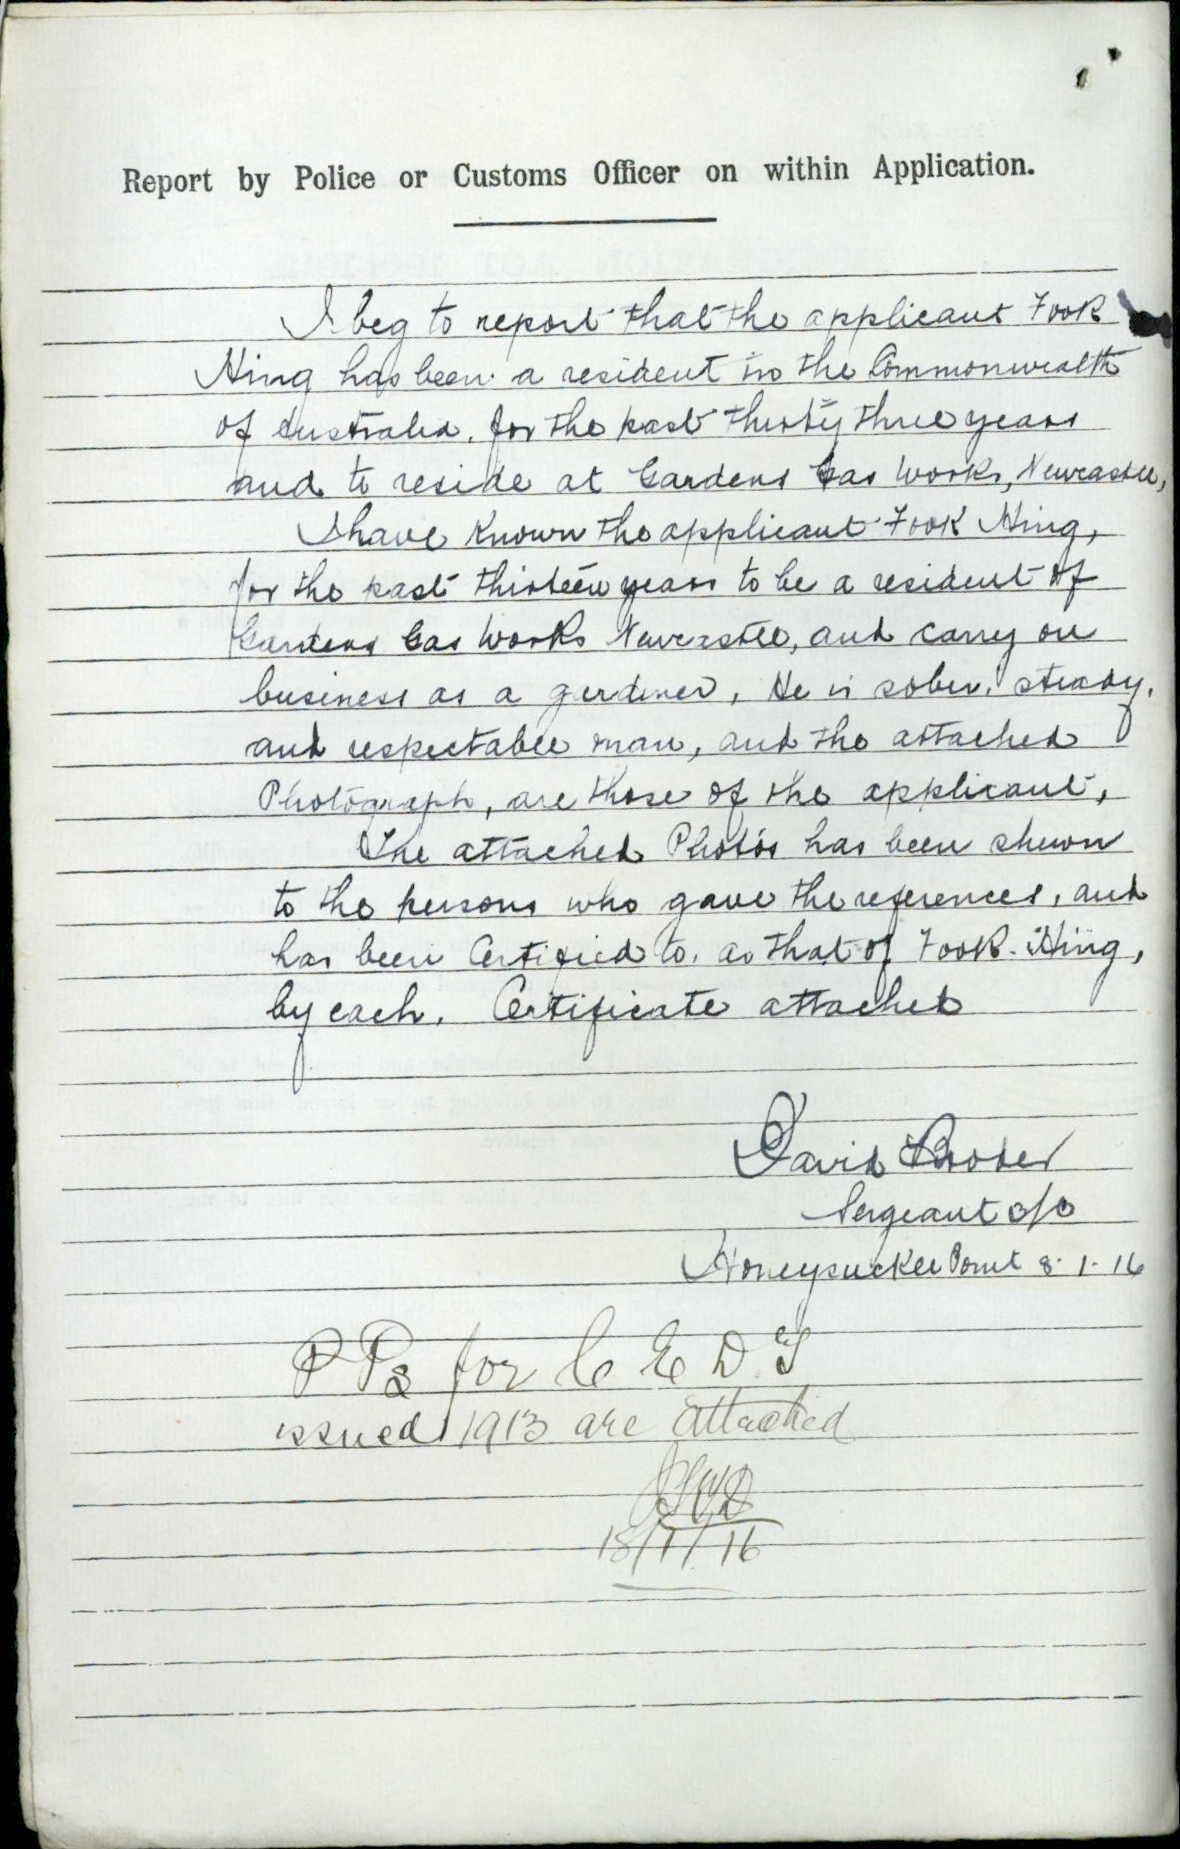 Report by Police or Customs Officer on within Application.
I beg to report that the applicant Fook
Hing has been a resident in the Commonwealth
of Australia, for the past thirty three years
and to reside at Gardens Gas Works, Newcastle,
I have known the applicant Fook Hing,
for the past thirteen years to be a resident of
Gardens Gas Works Newcastle, and carry on
business as a gardener, He is sober, steady,
and respectable man, and the attached
Photograph, are those of the applicant,
The attached Photos has been shewn
to the persons who gave the references, and
has been Certified to, as that of Fook Hing,
by each. Certificate attached
David
Sergeant
Honeysuckle Point 8.1.16
P Ps for C E D T
issued 1913 are attached
/1/16